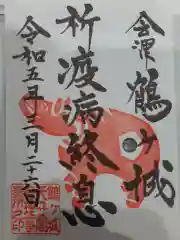 会津鶴ヶ城
祈疫病終息
令和五年三月二十六日